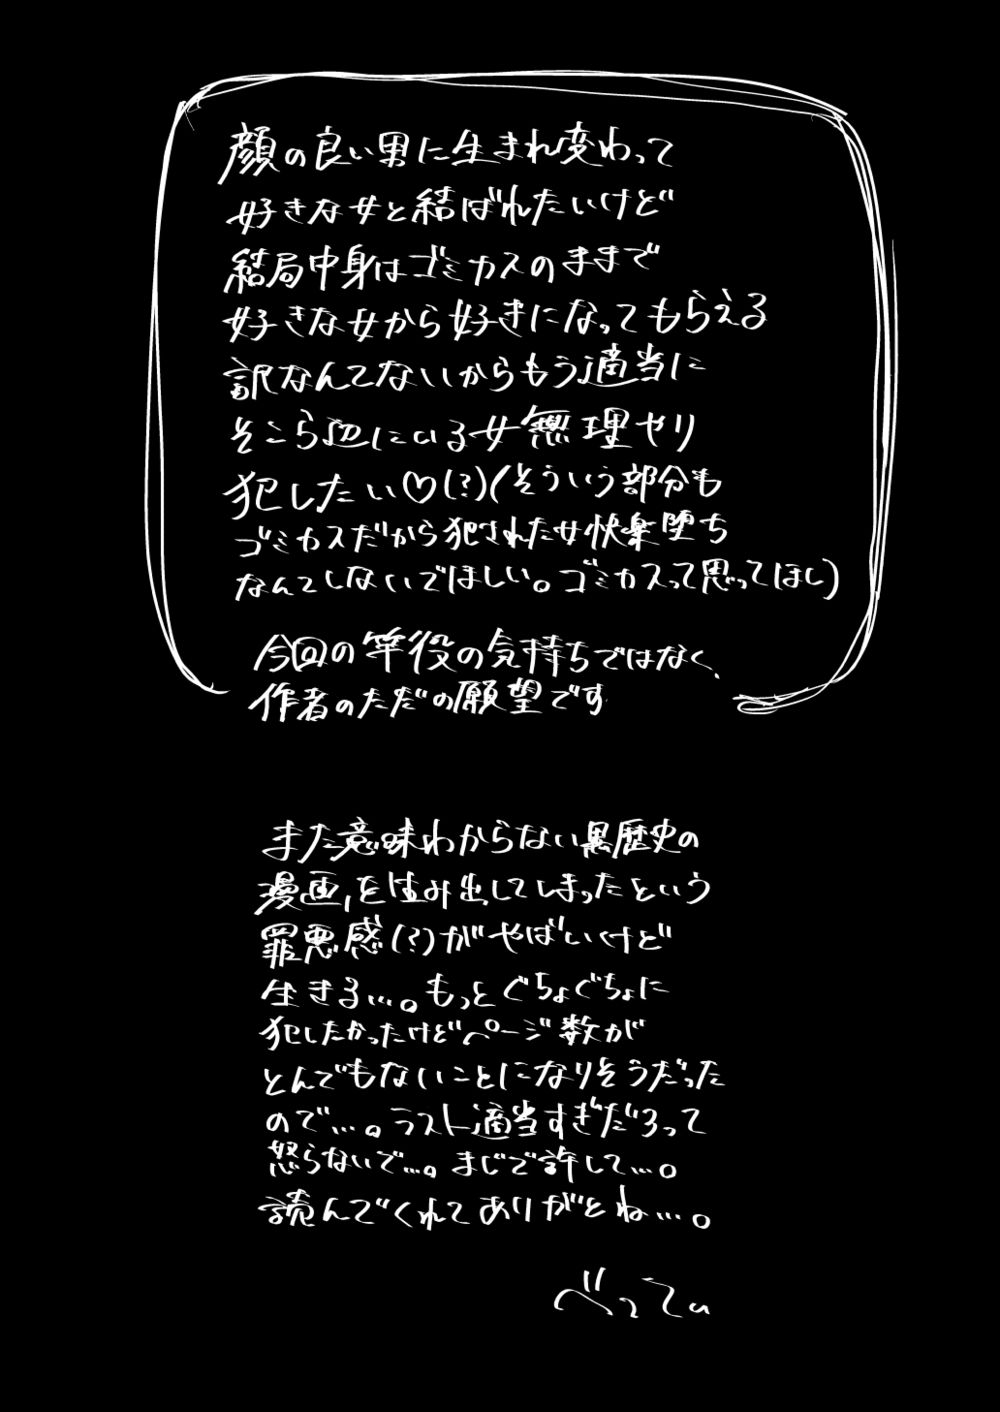 顔の良い男に生まれ変わって
好きな女と結ばれたいけど
結局中身はゴミカスのままで
好きな女から好きになってもらえる
訳なんてないからもう適当に
そこら辺にいる女無理やり
犯したい♡(?)(そういう部分も
ゴミカスだから犯された女快楽堕ち
なんてしないでほしい。ゴミカスって思ってほし)
今回の竿役の気持ちではなく、
作者のただの願望です
また意味わからない黒歴史の
漫画、を生み出してしまったという
罪悪感(?)がやばいけど
生きる…。もっとぐちょぐちょに
犯したかったけどページ数が
とんでもないことになりそうだった
ので…。ラスト適当すぎだろって
怒らないで…。まじで許して…。
読んでくれてありがとね…。
べってぃ